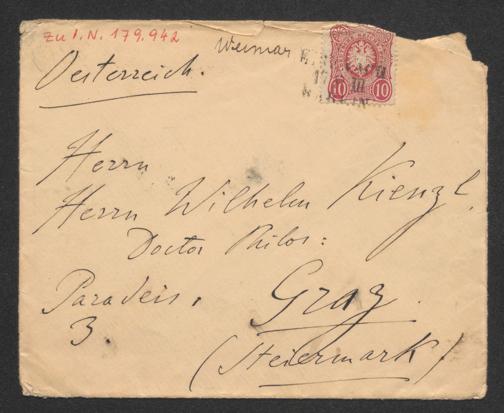 zu I.N. 179.942
Weimar
Oesterreich.
10 10
Herrn
Herrn Wilhelm Kienzl,
Doctor Philos:
Paradeis,
Graz
3.
(Steiermark)